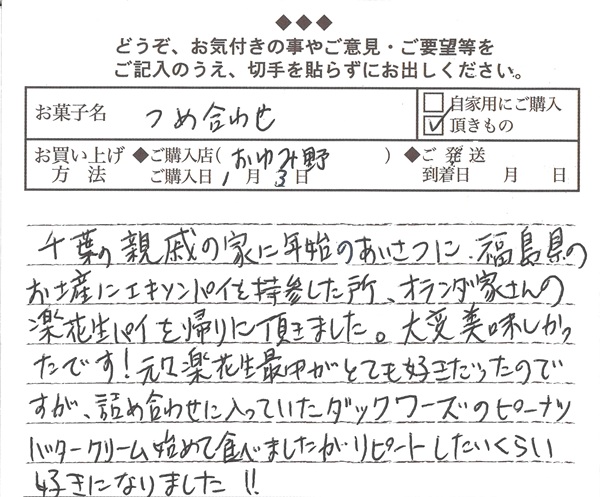 ◆◆◆
どうぞ、お気付きの事やご意見・ご要望等を
ご記入のうえ、切手を貼らずにお出しください。
お菓子名 つめ合わせ □自家用にご購入
☑頂きもの
お買い上げ ◆ご購入店( おゆみ野 ) ◆ご発送
方法 ご購入日 1月3日 到着日 月 日
千葉の親戚の家に年始のあいさつに、福島県の
お土産にエキソンパイを持参した所、オランダ家さんの
楽花生パイを帰りに頂きました。大変美味しかっ
たです!元々楽花生最中がとても好きだったので
すが、詰め合わせに入っていたダックワーズのピーナツ
バタークリーム始めて食べましたがリピートしたいくらい
好きになりました!!